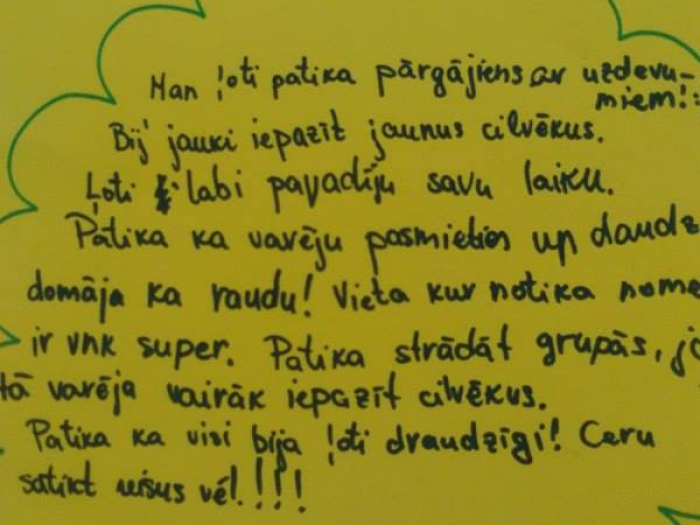 Man ļoti patika pārgājiens ar uzdevu-
miem!:
Bij jauki iepazīt jaunus cilvēkus.
Ļoti labi pavadīju savu laiku.
Patika ka varēju pasmieties un daudz
domāja ka raudu! Vieta kur notika nome
ir vnk super. Patika strādāt grupās, jo
tā varēja vairāk iepazīt cilvēkus.
Patika ka visi bija ļoti draudzīgi! Ceru
satikt visus vēl!!!